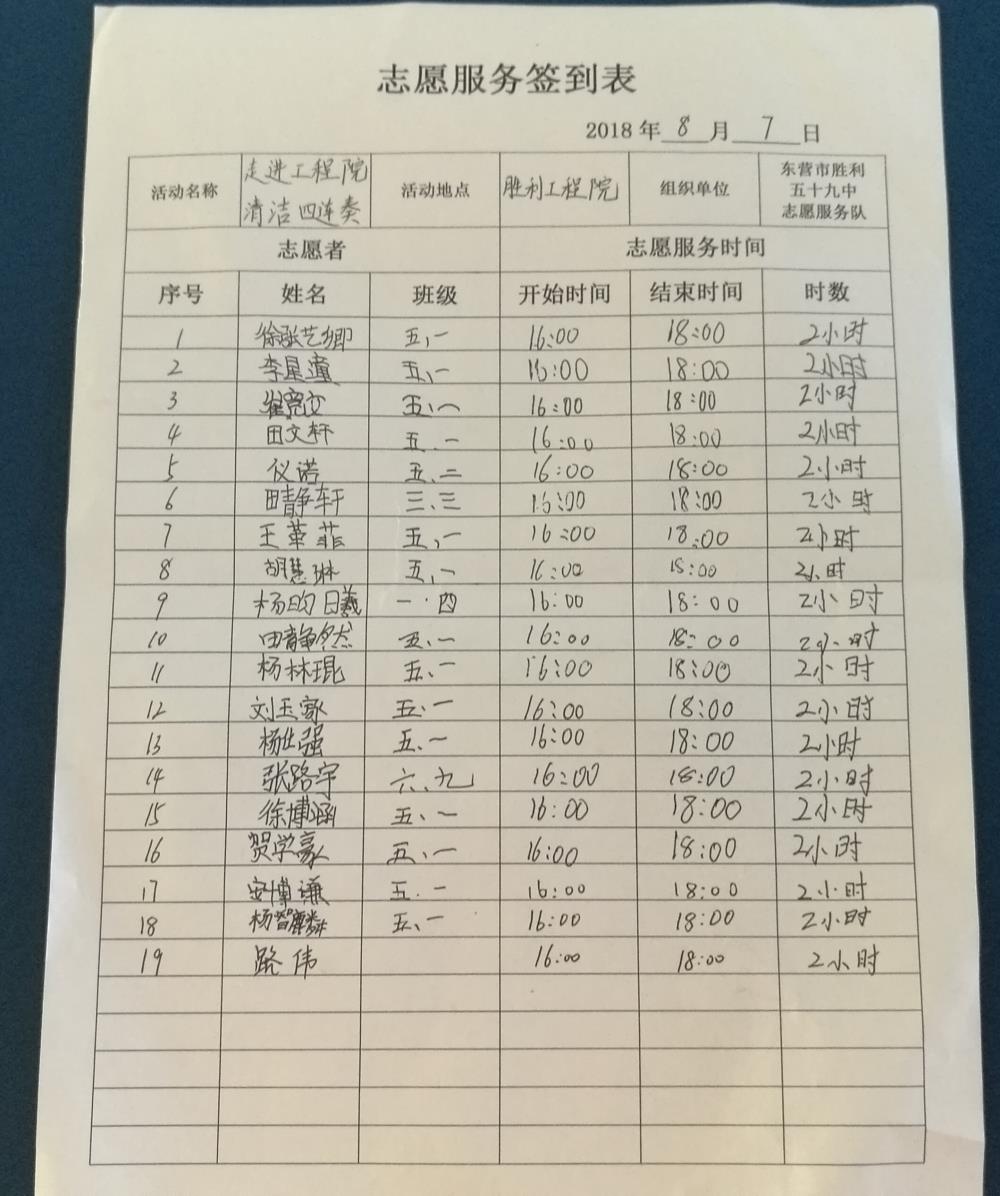 志愿服务签到表
2018 年 8 月 7 日
活动名称 走进工程院 清洁四连奏 活动地点 胜利工程院 组织单位 东营市胜利五十九中志愿服务队
志愿者 志愿服务时间
序号 姓名 班级 开始时间 结束时间 时数
1 徐张艺卿 五、一 16:00 18:00 2小时
2 李星潼 五、一 16:00 18:00 2小时
3 崔宽文 五、一 16:00 18:00 2小时
4 田文轩 五、一 16:00 18:00 2小时
5 仪诺 五、二 16:00 18:00 2小时
6 田静轩 三、三 16:00 18:00 2小时
7 王苇菲 五、一 16:00 18:00 2小时
8 胡慧琳 五、一 16:00 18:00 2小时
9 杨昀曦 一·四 16:00 18:00 2小时
10 田静然 五、一 16:00 18:00 2小时
11 杨林琨 五、一 16:00 18:00 2小时
12 刘玉家 五、一 16:00 18:00 2小时
13 杨出强 五、一 16:00 18:00 2小时
14 张路宇 六、九 16:00 18:00 2小时
15 徐博涵 五、一 16:00 18:00 2小时
16 贺学豪 五、一 16:00 18:00 2小时
17 安博谦 五、一 16:00 18:00 2小时
18 杨智麟 五、一 16:00 18:00 2小时
19 路伟 16:00 18:00 2小时